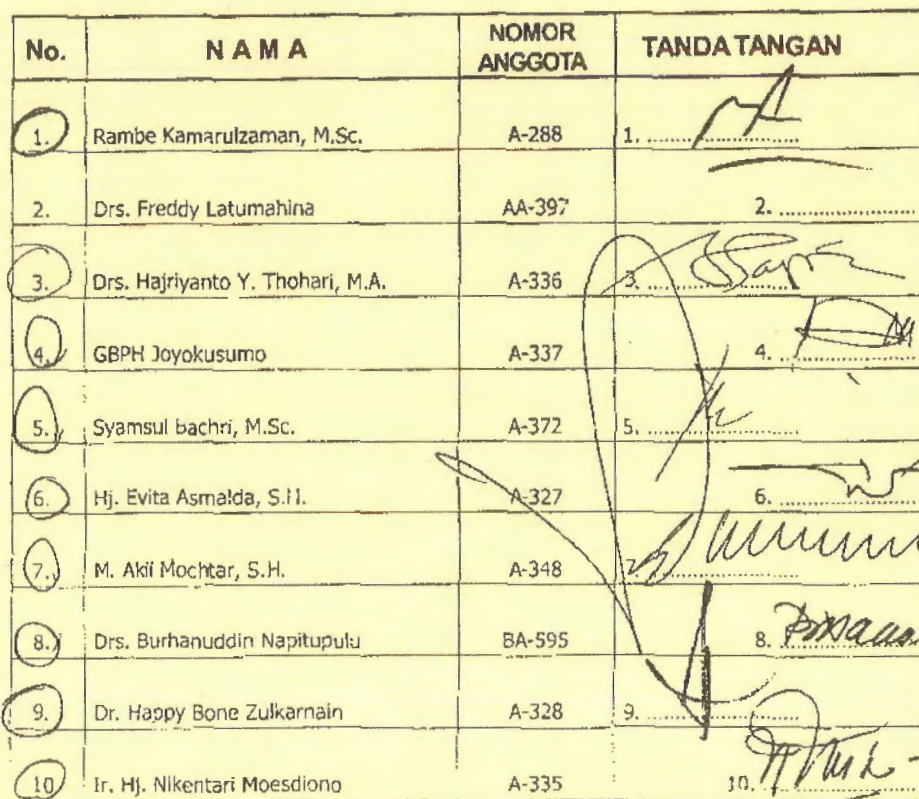 No. NAMA NOMOR ANGGOTA TANDA TANGAN
1. Rambe Kamarulzaman, M.Sc. A-288 1.
2. Drs. Freddy Latumahina AA-397 2.
3. Drs. Hajriyanto Y. Thohari, M.A. A-336 3.
4. GBPH Joyokusumo A-337 4.
5. Syamsul Bachri, M.Sc. A-372 5.
6. Hj. Evita Asmalda, S.H. A-327 6.
7. M. Akil Mochtar, S.H. A-348
8. Drs. Burhanuddin Napitupulu BA-595 8.
9. Dr. Happy Bone Zulkarnain A-328 9.
10 Ir. Hj. Nikentari Moesdiono A-335 10.